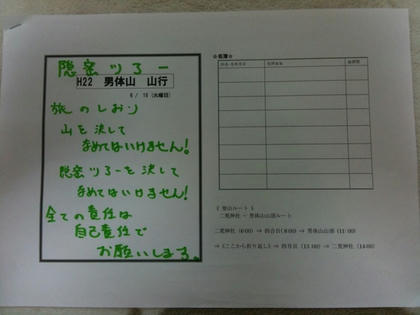 隠密ツろー
H22 男体山 山行
6 / 15 (火曜日)
旅のしおり
山を決して
なめてはいけません!
隠密ツろーを決して
なめてはいけません!
全ての責任は
自己責任で
お願いします。
☆名簿☆
《 登山ルート 》
二荒神社 - 男体山山頂ルート
二荒神社 (6:00) ⇒ 四合目(8:00) ⇒ 男体山山頂 (11:00)
⇒ (ここから折り返し) ⇒ 四合目 (13:00) ⇒ 二荒神社 (14:00)